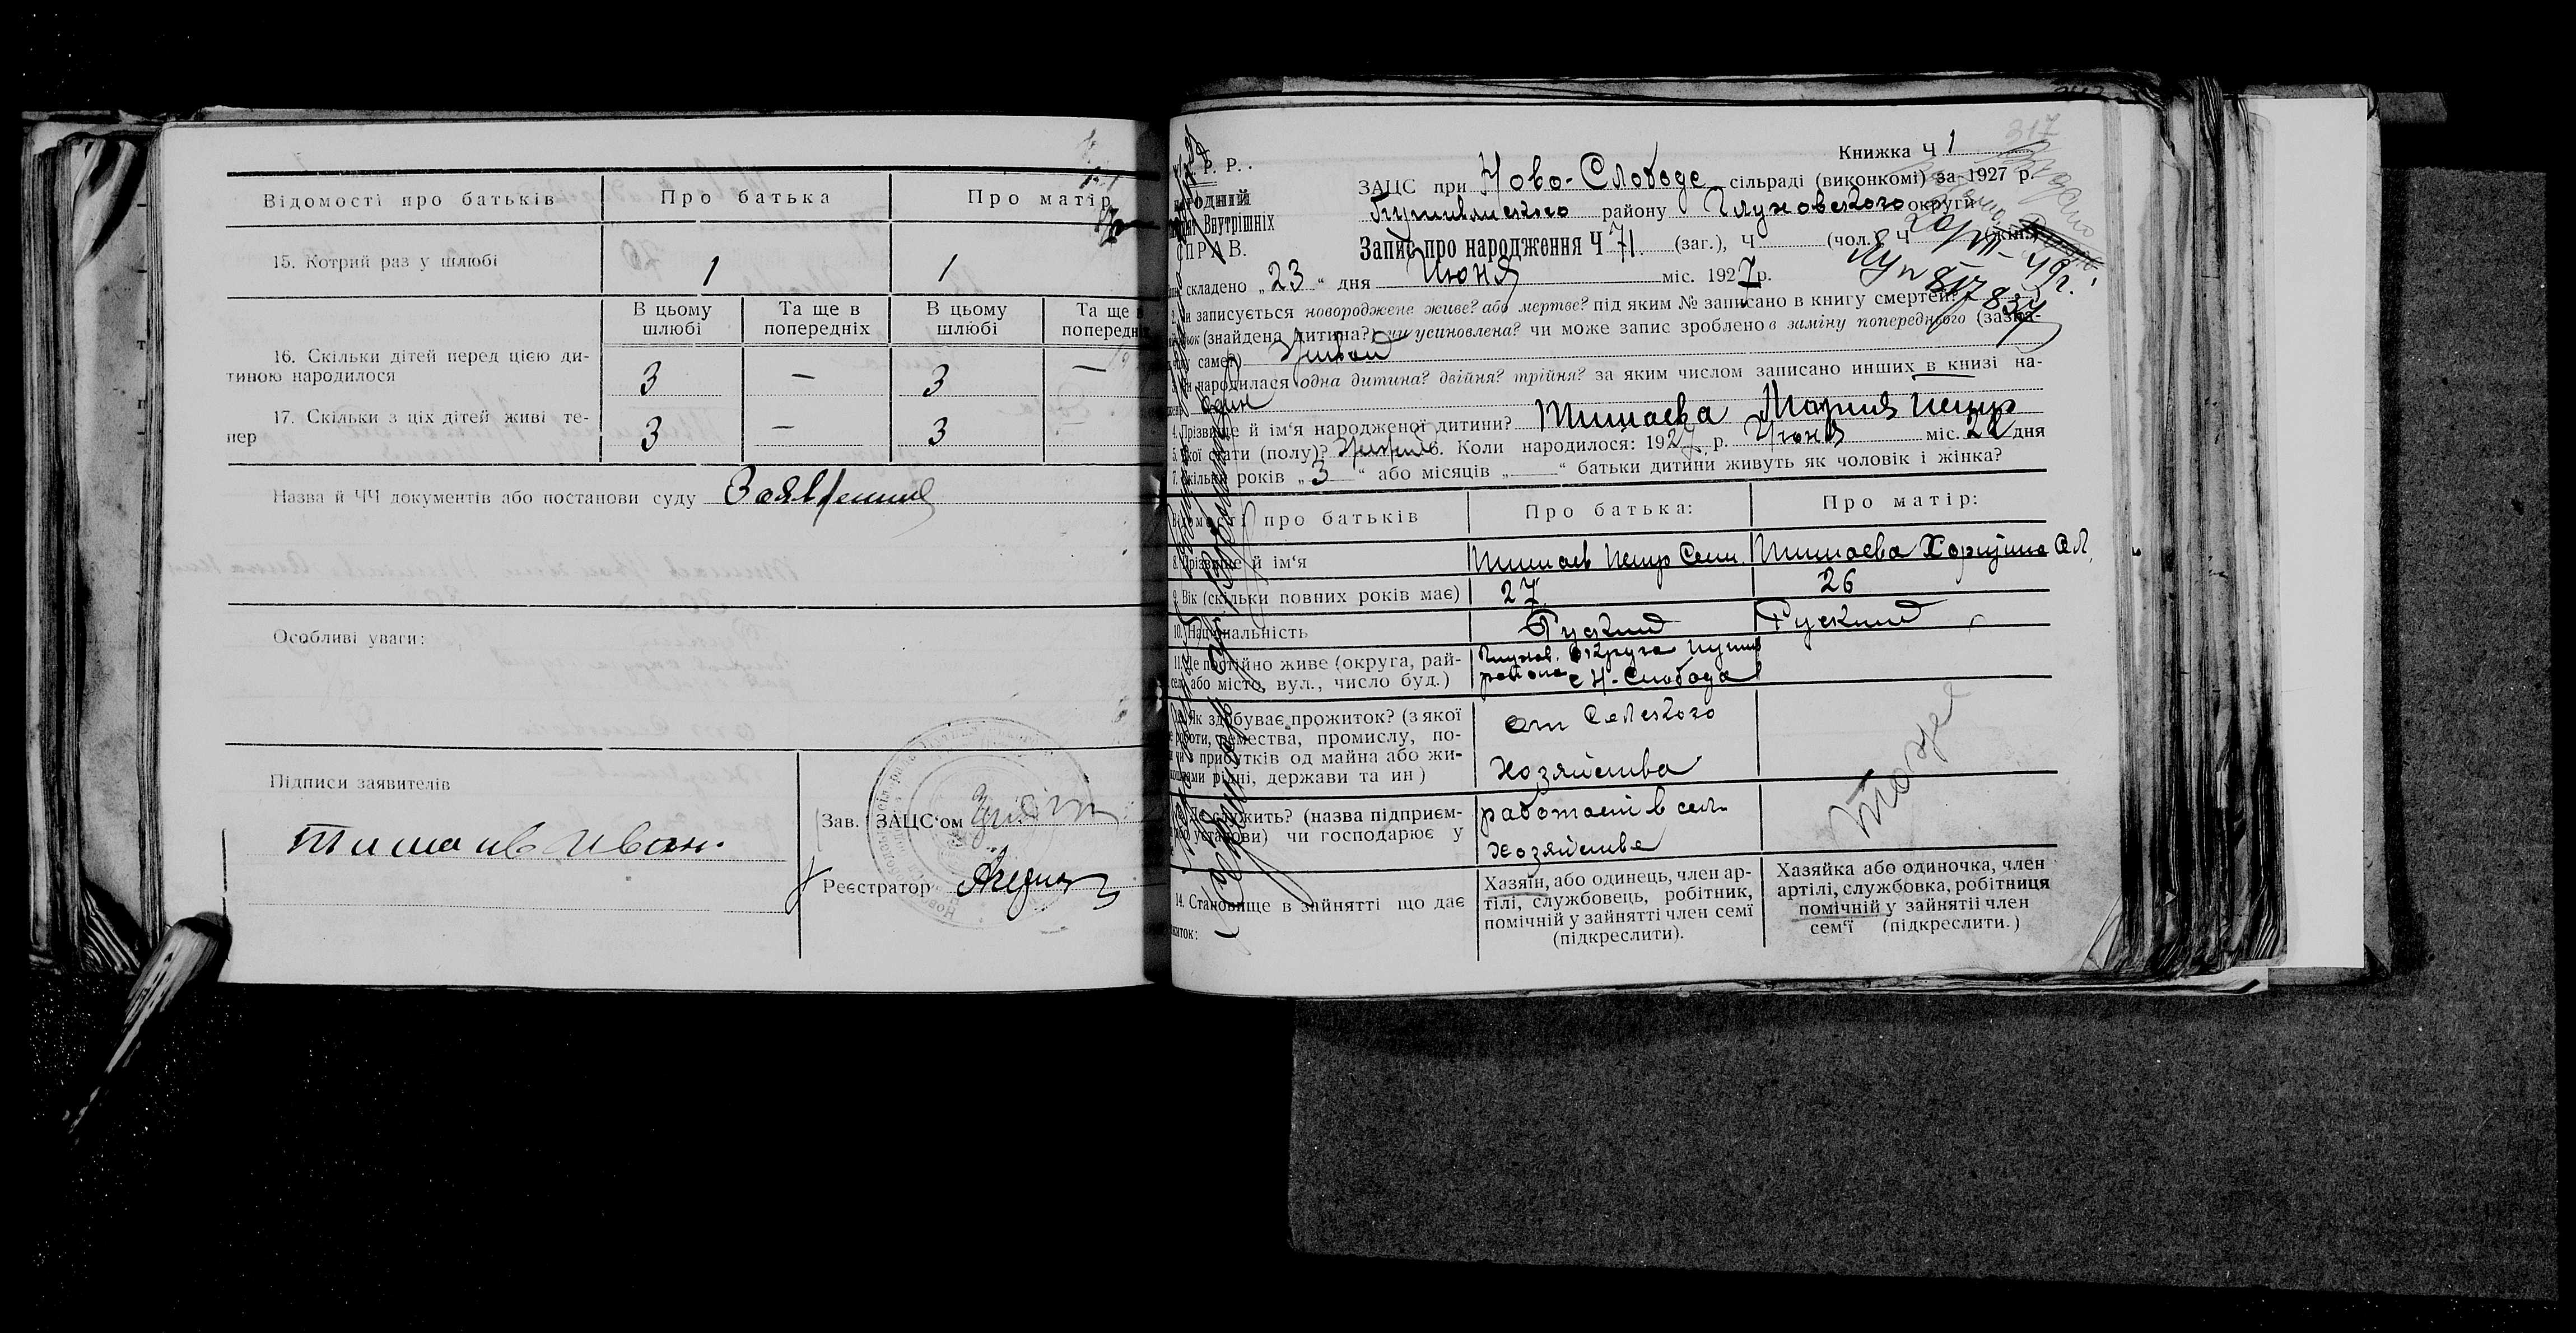 Відомості про батьків Про батька Про матір
15. Котрий раз у шлюбі 1 1
В цьому шлюбі Та ще в попередніх В цьому шлюбі Та ще в
16. Скільки дітей перед цією ди-
тиною народилося 3 — 3 —
17. Скільки з ціх дітей живі те-
пер 3 — 3
Назва й ЧЧ документів або постанови суду Заявление
Особливі уваги:
Підписи заявителів
Зав. ЗАЦС'ом
Тимаев Иван.
Реєстратор
317
Книжка Ч 1
Р. Р.
ЗАЦС при Ново-Слободе сільраді (виконкомі) за 1927 р.
Путивльского району Глуховского округи
Внутрішніх
СПРАВ.
Запис про народження Ч 71. (заг.), Ч (чол.), Ч (жін.)
складено „23“ дня Июня міс. 1927 р.
записується новороджене живе? або мертве? під яким № записано в книгу смертей?
(знайдена дитина?) чи усиновлена? чи може запис зроблено в заміну попереднього (зазна-
саме?) Живой
народилася одна дитина? двійня? трійня? за яким числом записано инших в книзі на-
один
4. Прізвище й ім'я народженої дитини? Тимаева Мария Петр
5. Якої стати (полу)? 6. Коли народилося: 1927 р. Июня міс. 22 дня
7. Скільки років „3“ або місяців „—“ батьки дитини живуть як чоловік і жінка?
Відомості про батьків Про батька: Про матір:
8. Прізвище й ім'я Тимаев Петр Сем. Тимаева Ал.
9. Вік (скільки повних років має) 27 26
10. Національність Руский Руский
11. Де постійно живе (округа, рай- Глухов. округа Путив
село або місто, вул., число буд.) района с Н-Слобода
12. Як здобуває прожиток? (з якої От Селского
роботи, ремества, промислу, по-
прибутків од майна або жи- хозяйства
рідні, держави та ин) тоже
Де служить? (назва підприєм- работает в сел.
установи) чи господарює у хозяйстве
14. Становище в зайнятті що дає
Хазяїн, або одинець, член ар-
тілі, службовець, робітник,
помічній у зайнятті член семї
(підкреслити).
Хазяйка або одиночка, член
артілі, службовка, робітниця
помічній у зайнятіі член
сем'ї (підкреслити.)